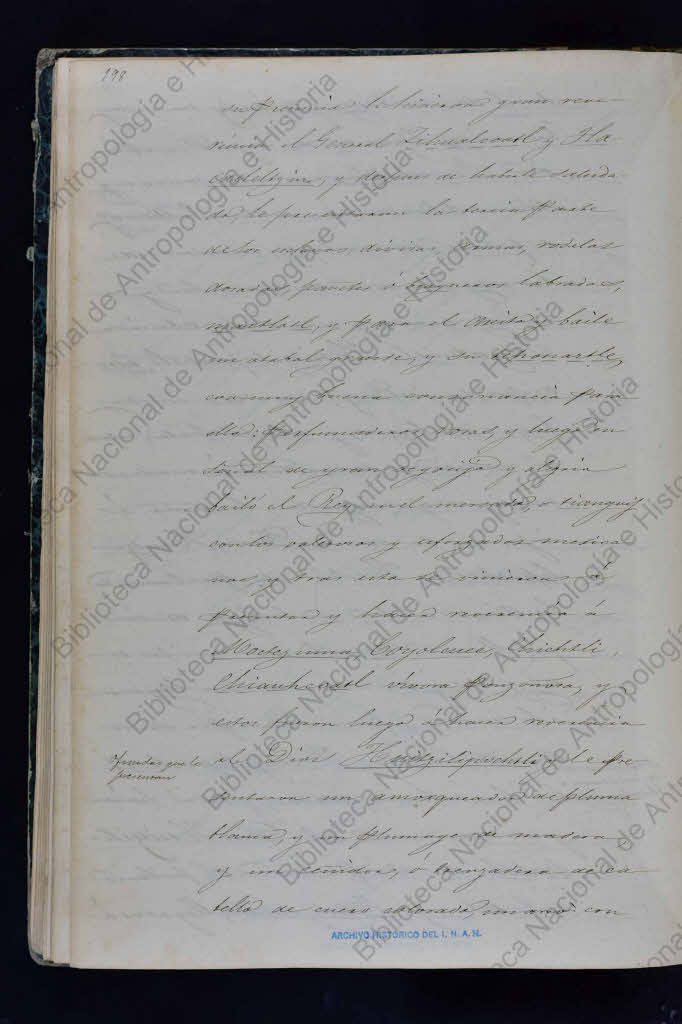 198
su Provincia: le hicieron gran reve-
rencia el General Zihualcoatl y Tla-
cochtelégui, y despues de haberle saluda-
do, le presentaron la tercia parte
de los esclavos, divisas, armas, rodelas
doradas, pañetes ó bragueros labrados,
maxtlatl, y para el Areito y baile
un atabal grande, y su teponaztle,
con muy buena consonancia para
ello: perfumaderos, rosas, y luego en
señal de gran regocijo y alegria
bailó el Rey en el mercado, o tianguiz
con los valerosos y esforzados mexica-
nos, y tras esto se vinieron á
presentar y hacer reverencia á
Moctezuma, Coyolcuec, Chichtli,
Chiauhcoatl vívora Ponzoñosa, y
estos fueron luego á hacer reverencia
al Dios Huitzilipochtli y le pre-
sentaron un amosqueador de pluma
blanca, y un plumage de madera
y un ceñidor, ó trenzadera de ca-
bello de cuero colorado, mano con
Ofrendas que le
presentan
ARCHIVO HISTORICO DEL I. N. A. H.
Biblioteca Nacional de Antropología e Historia